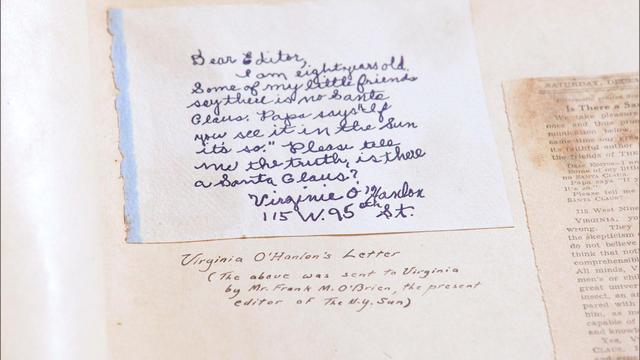 Dear Editor,
I am eight years old
Some of my little friends
say their is no Santa
Claus. Papa says "If
you see it in the Sun
its so." Please tell
me the truth, is there
a Santa Claus?
Virginia O'Hanlon
115 W. 95th St.
Virginia O'Hanlon's Letter
(The above was sent to Virginia
by Mr. Frank M. O'Brien, the present
editor of The N.Y. Sun)
SATURDAY,
Is There a
We take
below,
its faithful author
the friends of
Some of my little
no SANTA CLAUS.
Papa says "If
it's so."
Please tell me
SANTA CLAUS?
115 West
VIRGINIA,
wrong. They
the skepticism
do not believe
think that
comprehensible
All minds,
men's or
great
insect, an
pared with
him, as
capable of
and
Yes,
CLAUS.
and